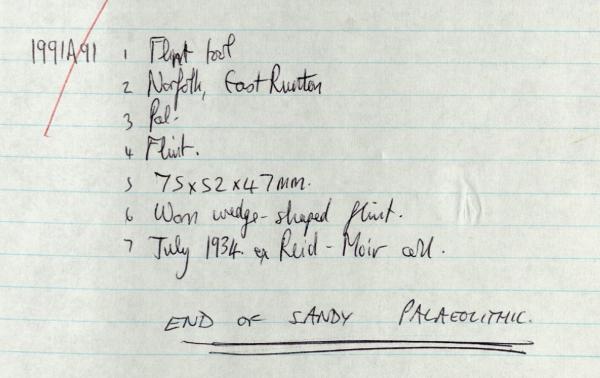 1991A91 1 Flint tool
2 Norfolk, East Runton
3 Pal.
4 Flint.
5 75x52x47mm.
6 Worn wedge-shaped flint.
7 July 1934. ex Reid-Moir coll.
END OF SANDY PALAEOLITHIC.